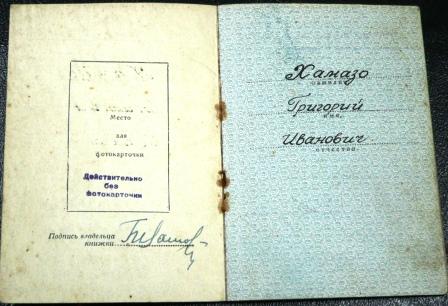 Место
для
фотокарточки
Действительно
без
фотокарточки
Подпись владельца
книжки
Хамазо
фамилия
Григорий
имя
Иванович
отчество